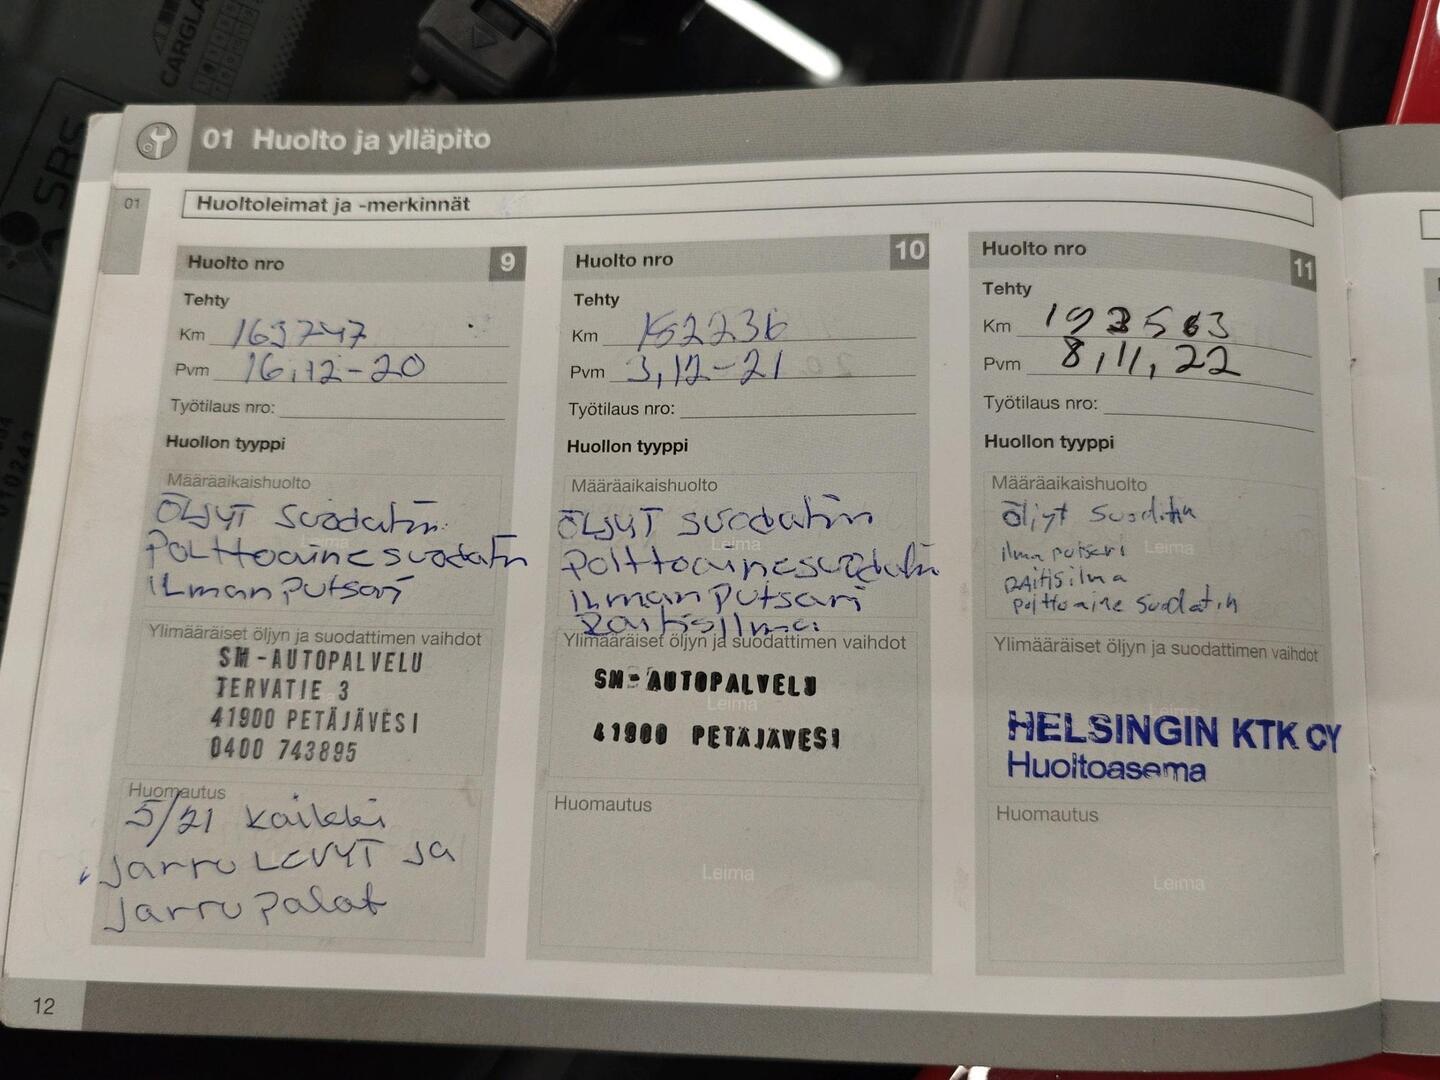 CARGLA
SRS
01 Huolto ja ylläpito
01
Huoltoleimat ja -merkinnät
Huolto nro 9
Tehty
Km 163747
Pvm 16.12-20
Työtilaus nro:
Huollon tyyppi
Määräaikaishuolto
ÖLJYT suodatin
Polttoainesuodatin
ILmanputsari
Leima
Ylimääräiset öljyn ja suodattimen vaihdot
SM-AUTOPALVELU
TERVATIE 3
41900 PETÄJÄVESI
0400 743895
Huomautus
5/21 kaikki
jarru LEVYT ja
jarru palat
Huolto nro 10
Tehty
Km 182236
Pvm 3,12-21
Työtilaus nro:
Huollon tyyppi
Määräaikaishuolto
ÖLJYT suodatin
Leima
polttoainesuodatin
ILmanputsari
Raitisilma
Ylimääräiset öljyn ja suodattimen vaihdot
SM-AUTOPALVELU
Leima
41900 PETÄJÄVESI
Huomautus
Leima
Huolto nro 11
Tehty
Km 193563
Pvm 8,11,22
Työtilaus nro:
Huollon tyyppi
Määräaikaishuolto
öljyt suodatin
ilmaputsari
Leima
raitisilma
polttoaine suodatin
Ylimääräiset öljyn ja suodattimen vaihdot
Leima
HELSINGIN KTK OY
Huoltoasema
Huomautus
Leima
12